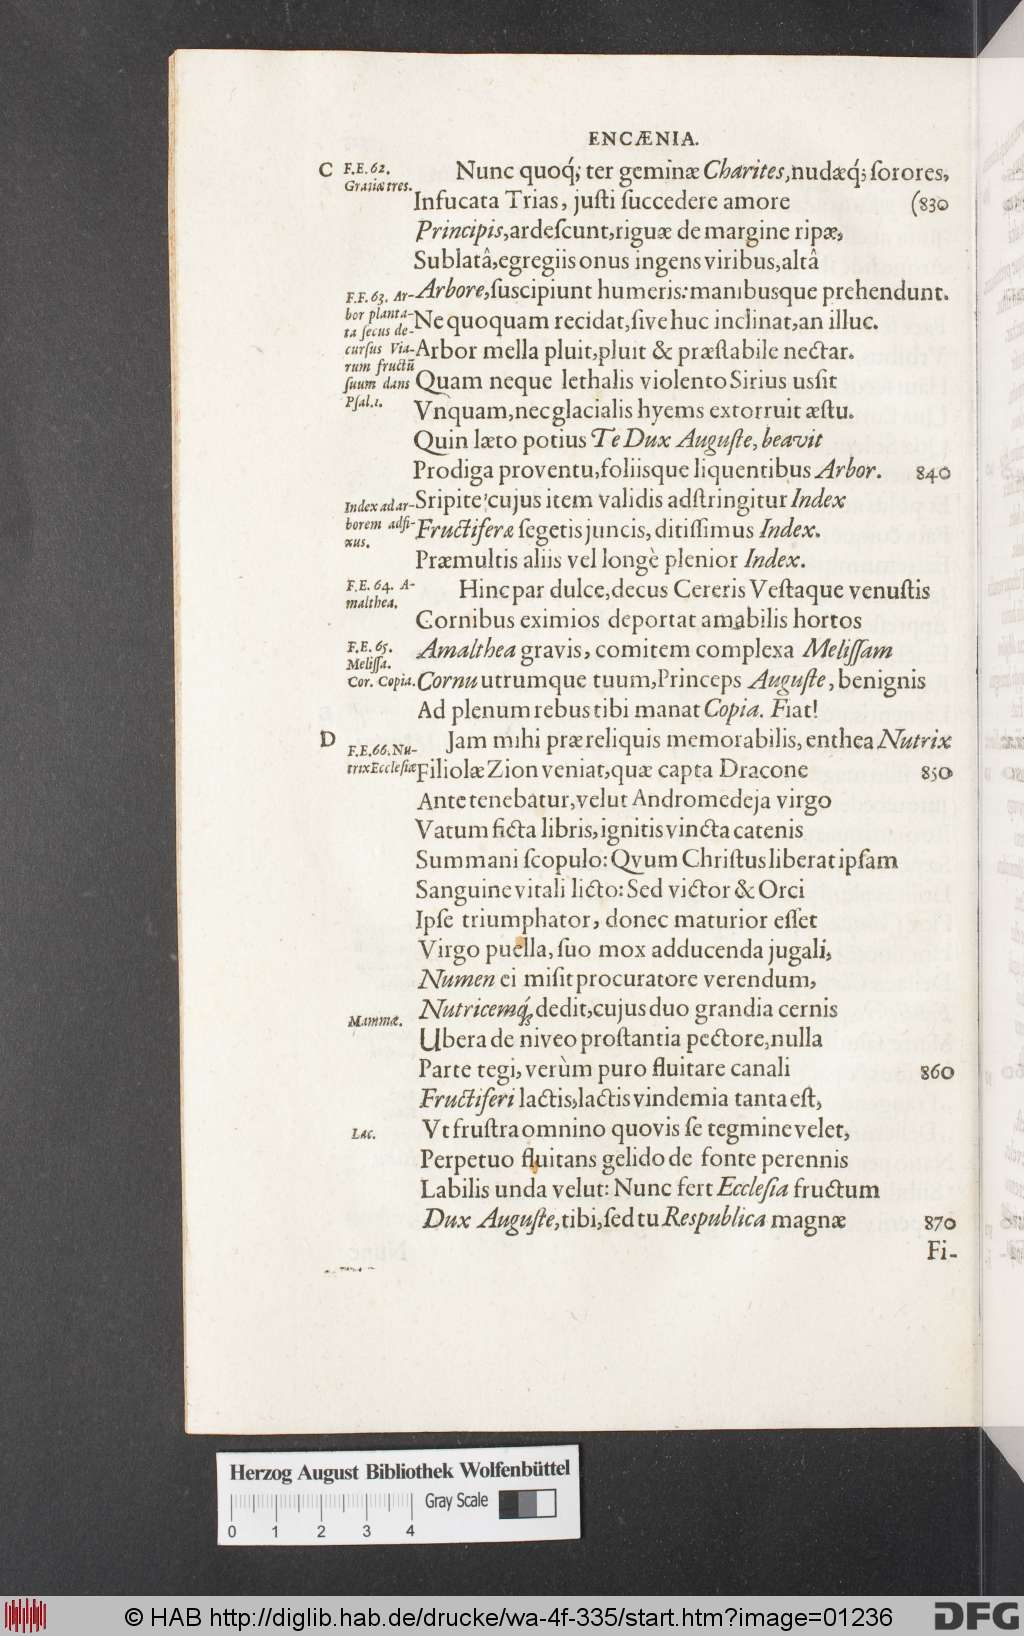 ENCÆNIA.
C F.E. 62. Nunc quoq́; ter geminæ Charites, nudæq́; ſorores,
Gratiæ tres.
Infucata Trias, juſti ſuccedere amore (830
Principis, ardeſcunt, riguæ de margine ripæ,
Sublatâ, egregiis onus ingens viribus, altâ
F.F. 63. Ar- Arbore, ſuscipiunt humeris: manibusque prehendunt.
bor planta- Ne quoquam recidat, ſive huc inclinat, an illuc.
ta ſecus de-
curſus Via- Arbor mella pluit, pluit & præſtabile nectar.
rum fructū
ſuum dans Quam neque lethalis violento Sirius usſit
Pſal. 1. Vnquam, nec glacialis hyems extorruit æſtu.
Quin læto potius Te Dux Auguſte, beavit
Prodiga proventu, foliisque liquentibus Arbor. 840
Index ad ar- Sripite, cujus item validis adſtringitur Index
borem adfi- Fructiferæ ſegetis juncis, ditiſſimus Index.
xus.
Præmultis aliis vel longè plenior Index.
F.E. 64. A- Hinc par dulce, decus Cereris Veſtaque venuſtis
malthea. Cornibus eximios deportat amabilis hortos
F.E. 65. Amalthea gravis, comitem complexa Meliſſam
Meliſſa.
Cor. Copia. Cornu utrumque tuum, Princeps Auguſte, benignis
Ad plenum rebus tibi manat Copia. Fiat!
D F.E. 66. Nu- Jam mihi præ reliquis memorabilis, enthea Nutrix
trix Eccleſiæ Filiolæ Zion veniat, quæ capta Dracone 850
Ante tenebatur, velut Andromedeja virgo
Vatum ficta libris, ignitis vincta catenis
Summani ſcopulo: Qvum Chriſtus liberat ipſam
Sanguine vitali licto: Sed victor & Orci
Ipſe triumphator, donec maturior eſſet
Virgo puella, ſuo mox adducenda jugali,
Numen ei miſit procuratore verendum,
Nutricemq́; dedit, cujus duo grandia cernis
Mammæ.
Ubera de niveo proſtantia pectore, nulla
Parte tegi, verùm puro fluitare canali 860
Fructiferi lactis, lactis vindemia tanta eſt,
Lac. Vt fruſtra omnino quovis ſe tegmine velet,
Perpetuo fluitans gelido de fonte perennis
Labilis unda velut: Nunc fert Eccleſia fructum
Dux Auguſte, tibi, ſed tu Respublica magnæ 870
Fi-
Herzog August Bibliothek Wolfenbüttel
Gray Scale
0 1 2 3 4
© HAB http://diglib.hab.de/drucke/wa-4f-335/start.htm?image=01236
DFG